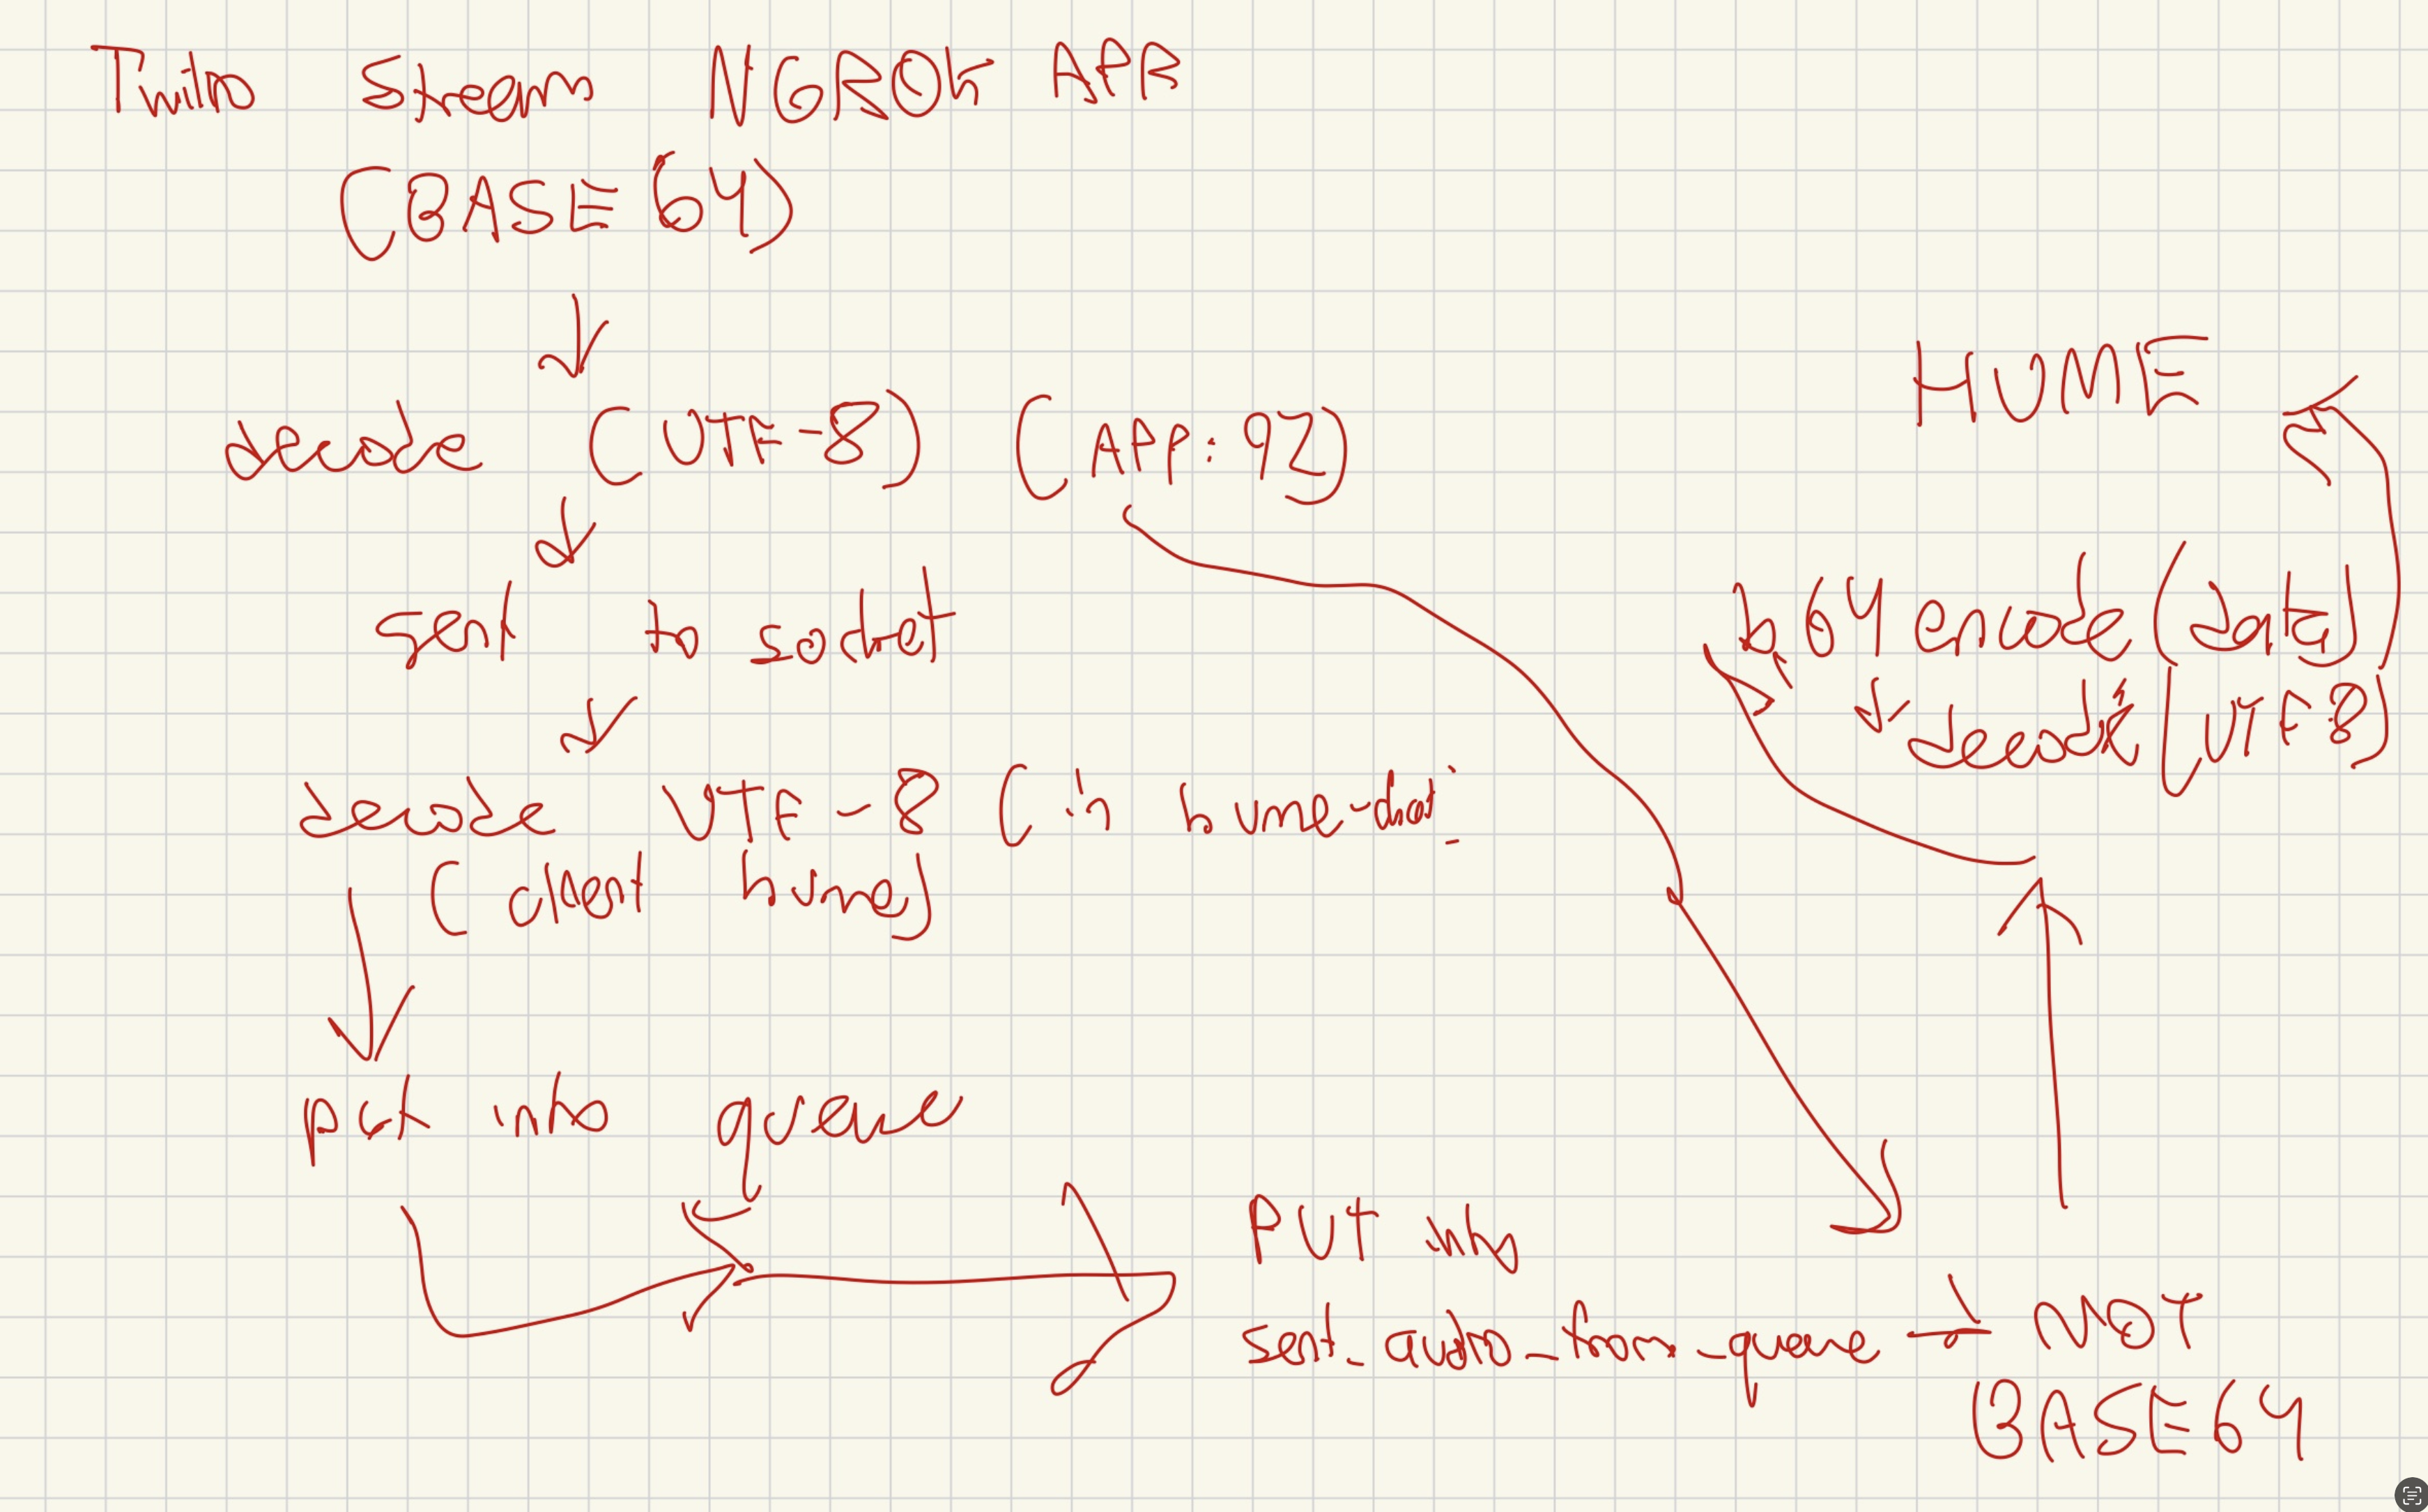 Twilio Stream NGROK APP
(BASE 64)
decode (UTF-8) (APP: 92)
sent to socket
decode UTF-8 (in hume-dat
(client hume)
put into queue
PUT into
sent_audio_from_queue → NOT
BASE64
HUME
b64 encode (data)
decode (UTF-8)